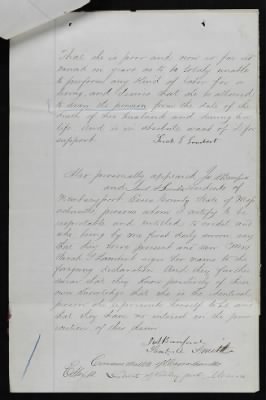 That she is poor and now is far ad-
vanced in years as to be totaly unable
to perform any kind of labor for a
living, and desires that she be allowed
to draw the pension from the date of the
death of her husband and during her
life and is in absolute want of it for
support.
Also personally appeared
and residents of
Newburyport Essex County State of Mas
sachusetts persons whom I certify to be
respectable and entitled to credit and
who being by me first duly sworn say
that they were present and saw Mrs
Sarah sign her name to the
foregoing declaration And they further
swear that they know positively of their
own knowledge that she is the identical
person she represents herself to be and
that they have no interest in the pros
ecution of this claim
Smith
Commonwealth of Massachusetts
Essex SS District of